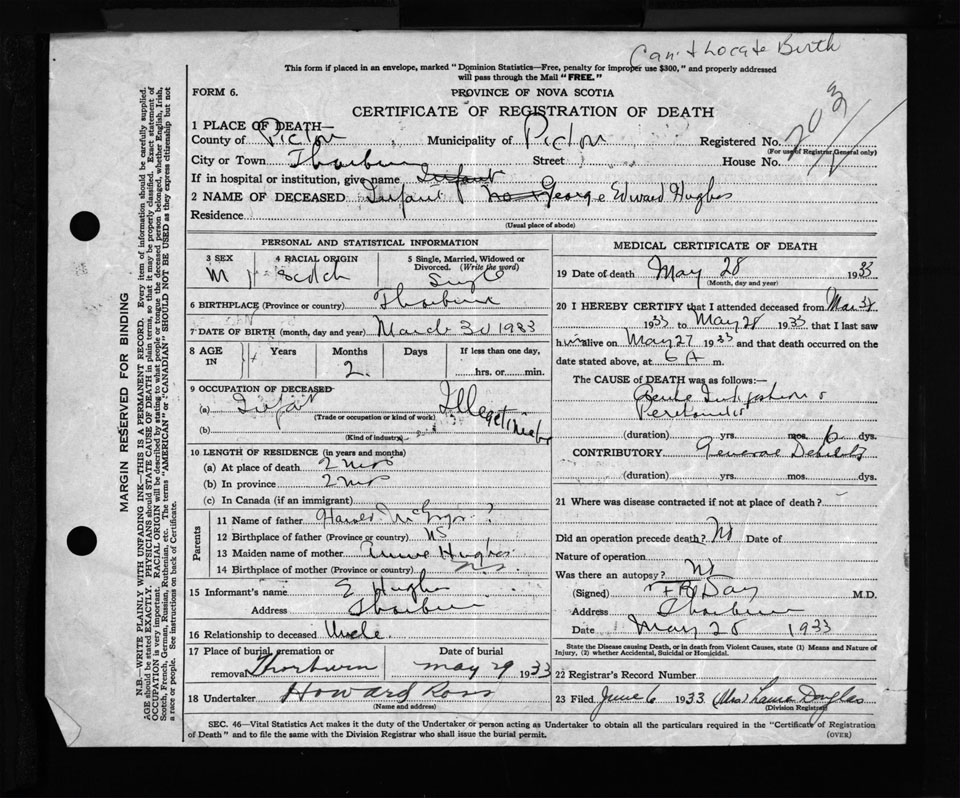 Can't Locate Birth
This form if placed in an envelope, marked "Dominion Statistics—Free, penalty for improper use $300," and properly addressed
will pass through the Mail "FREE."
FORM 6.
PROVINCE OF NOVA SCOTIA
CERTIFICATE OF REGISTRATION OF DEATH
203
1 PLACE OF DEATH—
County of Pictou Municipality of Pictou Registered No.
(For use of Registrar General only)
City or Town Thorburn Street House No.
If in hospital or institution, give name Infant
2 NAME OF DECEASED Infant George Edward Hughes
Residence
(Usual place of abode)
MARGIN RESERVED FOR BINDING
N.B.—WRITE PLAINLY WITH UNFADING INK—THIS IS A PERMANENT RECORD. Every item of information should be carefully supplied.
AGE should be stated EXACTLY. PHYSICIANS should STATE CAUSE OF DEATH in plain terms, so that it may be properly classified. Exact statement of
OCCUPATION is very important. RACIAL ORIGIN will be described by stating to what people or tongue the deceased person belonged, whether English, Irish,
Scotch, French, German, Russian, Ruthenian, etc. The terms "AMERICAN" or "CANADIAN" SHOULD NOT BE USED as they express citizenship but not
a race or people. See instructions on back of Certificate.
PERSONAL AND STATISTICAL INFORMATION
3 SEX 4 RACIAL ORIGIN 5 Single, Married, Widowed or
Divorced. (Write the word)
M Scotch Single
6 BIRTHPLACE (Province or country) Thorburn
7 DATE OF BIRTH (month, day and year) March 30 1933
8 AGE IN Years Months Days If less than one day,
2 hrs. or min.
9 OCCUPATION OF DECEASED
(a) Infant Illegetimate
(Trade or occupation or kind of work)
(b)
(Kind of industry)
10 LENGTH OF RESIDENCE (in years and months)
(a) At place of death 2 mos
(b) In province 2 mos
(c) In Canada (if an immigrant)
Parents
11 Name of father ?
12 Birthplace of father (Province or country) NS
13 Maiden name of mother Hughes
14 Birthplace of mother (Province or country) N.S.
15 Informant's name E Hughes
Address Thorburn
16 Relationship to deceased Uncle
17 Place of burial, cremation or Date of burial
removal Thorburn May 29 1933
18 Undertaker Howard Ross
(Name and address)
MEDICAL CERTIFICATE OF DEATH
19 Date of death May 28 1933
(Month, day and year)
20 I HEREBY CERTIFY that I attended deceased from
1933 to May 28 1933 that I last saw
him alive on May 27 1933 and that death occurred on the
date stated above, at 6 A m.
The CAUSE OF DEATH was as follows:—
(duration) yrs. mos. 6 dys.
CONTRIBUTORY General Debility
(duration) yrs. mos. dys.
21 Where was disease contracted if not at place of death?
Did an operation precede death? No Date of
Nature of operation
Was there an autopsy? No
(Signed) Day M.D.
Address Thorburn
Date May 28 1933
State the Disease causing Death, or in death from Violent Causes, state (1) Means and Nature of
Injury, (2) whether Accidental, Suicidal or Homicidal.
22 Registrar's Record Number
23 Filed June 6 1933 (Mrs) Laura Douglas
(Division Registrar)
SEC. 46—Vital Statistics Act makes it the duty of the Undertaker or person acting as Undertaker to obtain all the particulars required in the "Certificate of Registration
of Death" and to file the same with the Division Registrar who shall issue the burial permit.
(OVER)